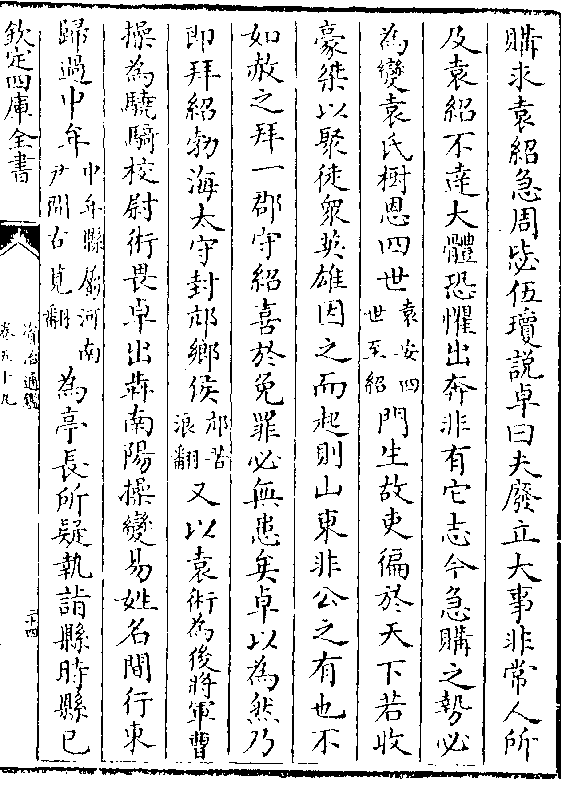 購求袁紹急周毖伍瓊說卓曰夫廢立大事非常人所
及袁紹不達大體恐懼出奔非有它志今急購之勢必
為變袁氏樹恩四世袁安四世至紹門生故吏徧於天下若收
豪桀以聚徒衆英雄因之而起則山東非公之有也不
如赦之拜一郡守紹喜於免罪必無患矣卓以為然乃
即拜紹勃海太守封邟鄉侯邟苦浪翻又以袁術為後將軍曹
操為驍騎校尉術畏卓出犇南陽操變易姓名間行東
歸過中牟中牟縣屬河南尹間古莧翻為亭長所疑執詣縣時縣已
欽定四庫全書
資治通鑑
卷五十九
二十四